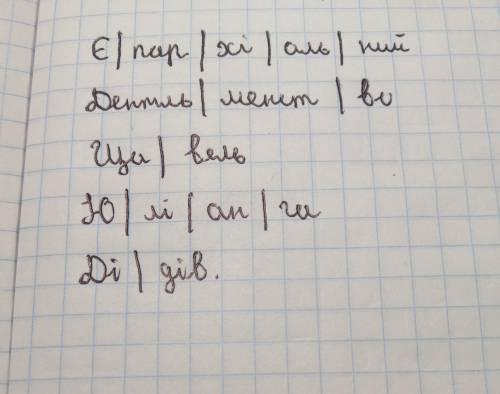 Є|пар|хі|аль|ний
Дентль|мент|во
Ща|вель
Ю|лі|ан|га
Ді|дів.